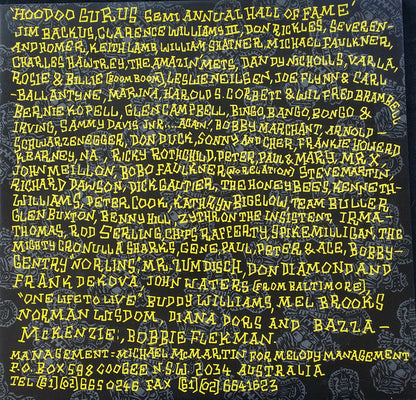 'HOODOO GURUS SEMI ANNUAL HALL OF FAME'
JIM BACKUS, CLARENCE WILLIAMS III, DON RICKLES, SEVEREN-
AND HOMER, KEITH LAMB, WILLIAM SHATNER, MICHAEL FAULKNER,
CHARLES HAWTREY, THE AMAZIN METS, DANDY NICHOLLS, VARLA,
ROSIE & BILLIE (BOOM BOOM), LESLIE NEILSEN, JOE FLYNN & CARL-
BALLANTYNE, MARINA, HAROLD S. CORBETT & WILFRED BRAMBELL
BERNIE KOPELL, GLEN CAMPBELL, BINGO, BANGO, BONGO &
IRVING, SAMMY DAVIS JNR... AGAIN! BOBBY MARCHANT, ARNOLD-
SCHWARZENEGGER, DON DUCK, SONNY AND CHER, FRANKIE HOWERD
KEARNEY, NA, RICKY ROTHCHILD, PETER, PAUL & MARY, MR X,
JOHN MEILLON, BOBO FAULKNER (NO RELATION) STEVE MARTIN,
RICHARD DAWSON, DICK GAUTIER, THE HONEYBEES, KENNETH-
WILLIAMS, PETER COOK, KATHRYN BIGELOW, TEAM BULLER,
GLEN BUXTON, BENNY HILL, ZYTHRON THE INSISTENT, IRMA-
THOMAS, ROD SERLING, CHIPS RAFFERTY, SPIKE MILLIGAN, THE
MIGHTY CRONULLA SHARKS, GENE, PAUL, PETER & ACE, BOBBY-
GENTRY "NORLINS", MR. ZUMDISCH, DON DIAMOND AND
FRANK DEKOVA, JOHN WATERS (FROM BALTIMORE)
"ONE LIFE TO LIVE", BUDDY WILLIAMS, MEL BROOKS
NORMAN WISDOM, DIANA DORS AND BAZZA-
MCKENZIE, BOBBIE FLEKMAN.
MANAGEMENT-MICHAEL MCMARTIN FOR MELODY MANAGEMENT
P.O. BOX 598 COOGEE N.S.W. 2034 AUSTRALIA
TEL (61)(02) 665 0246 FAX (61)(02) 6641623